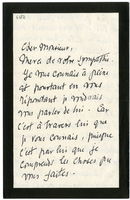 Cher Monsieur,
Merci de votre sympathie.
Je vous connais à peine
et pourtant en vous
répondant je voudrais
vous parler de lui. Car
c'est à travers lui que
je vous connais, puisque
c'est par lui que je
comprends les choses que
vous faites.